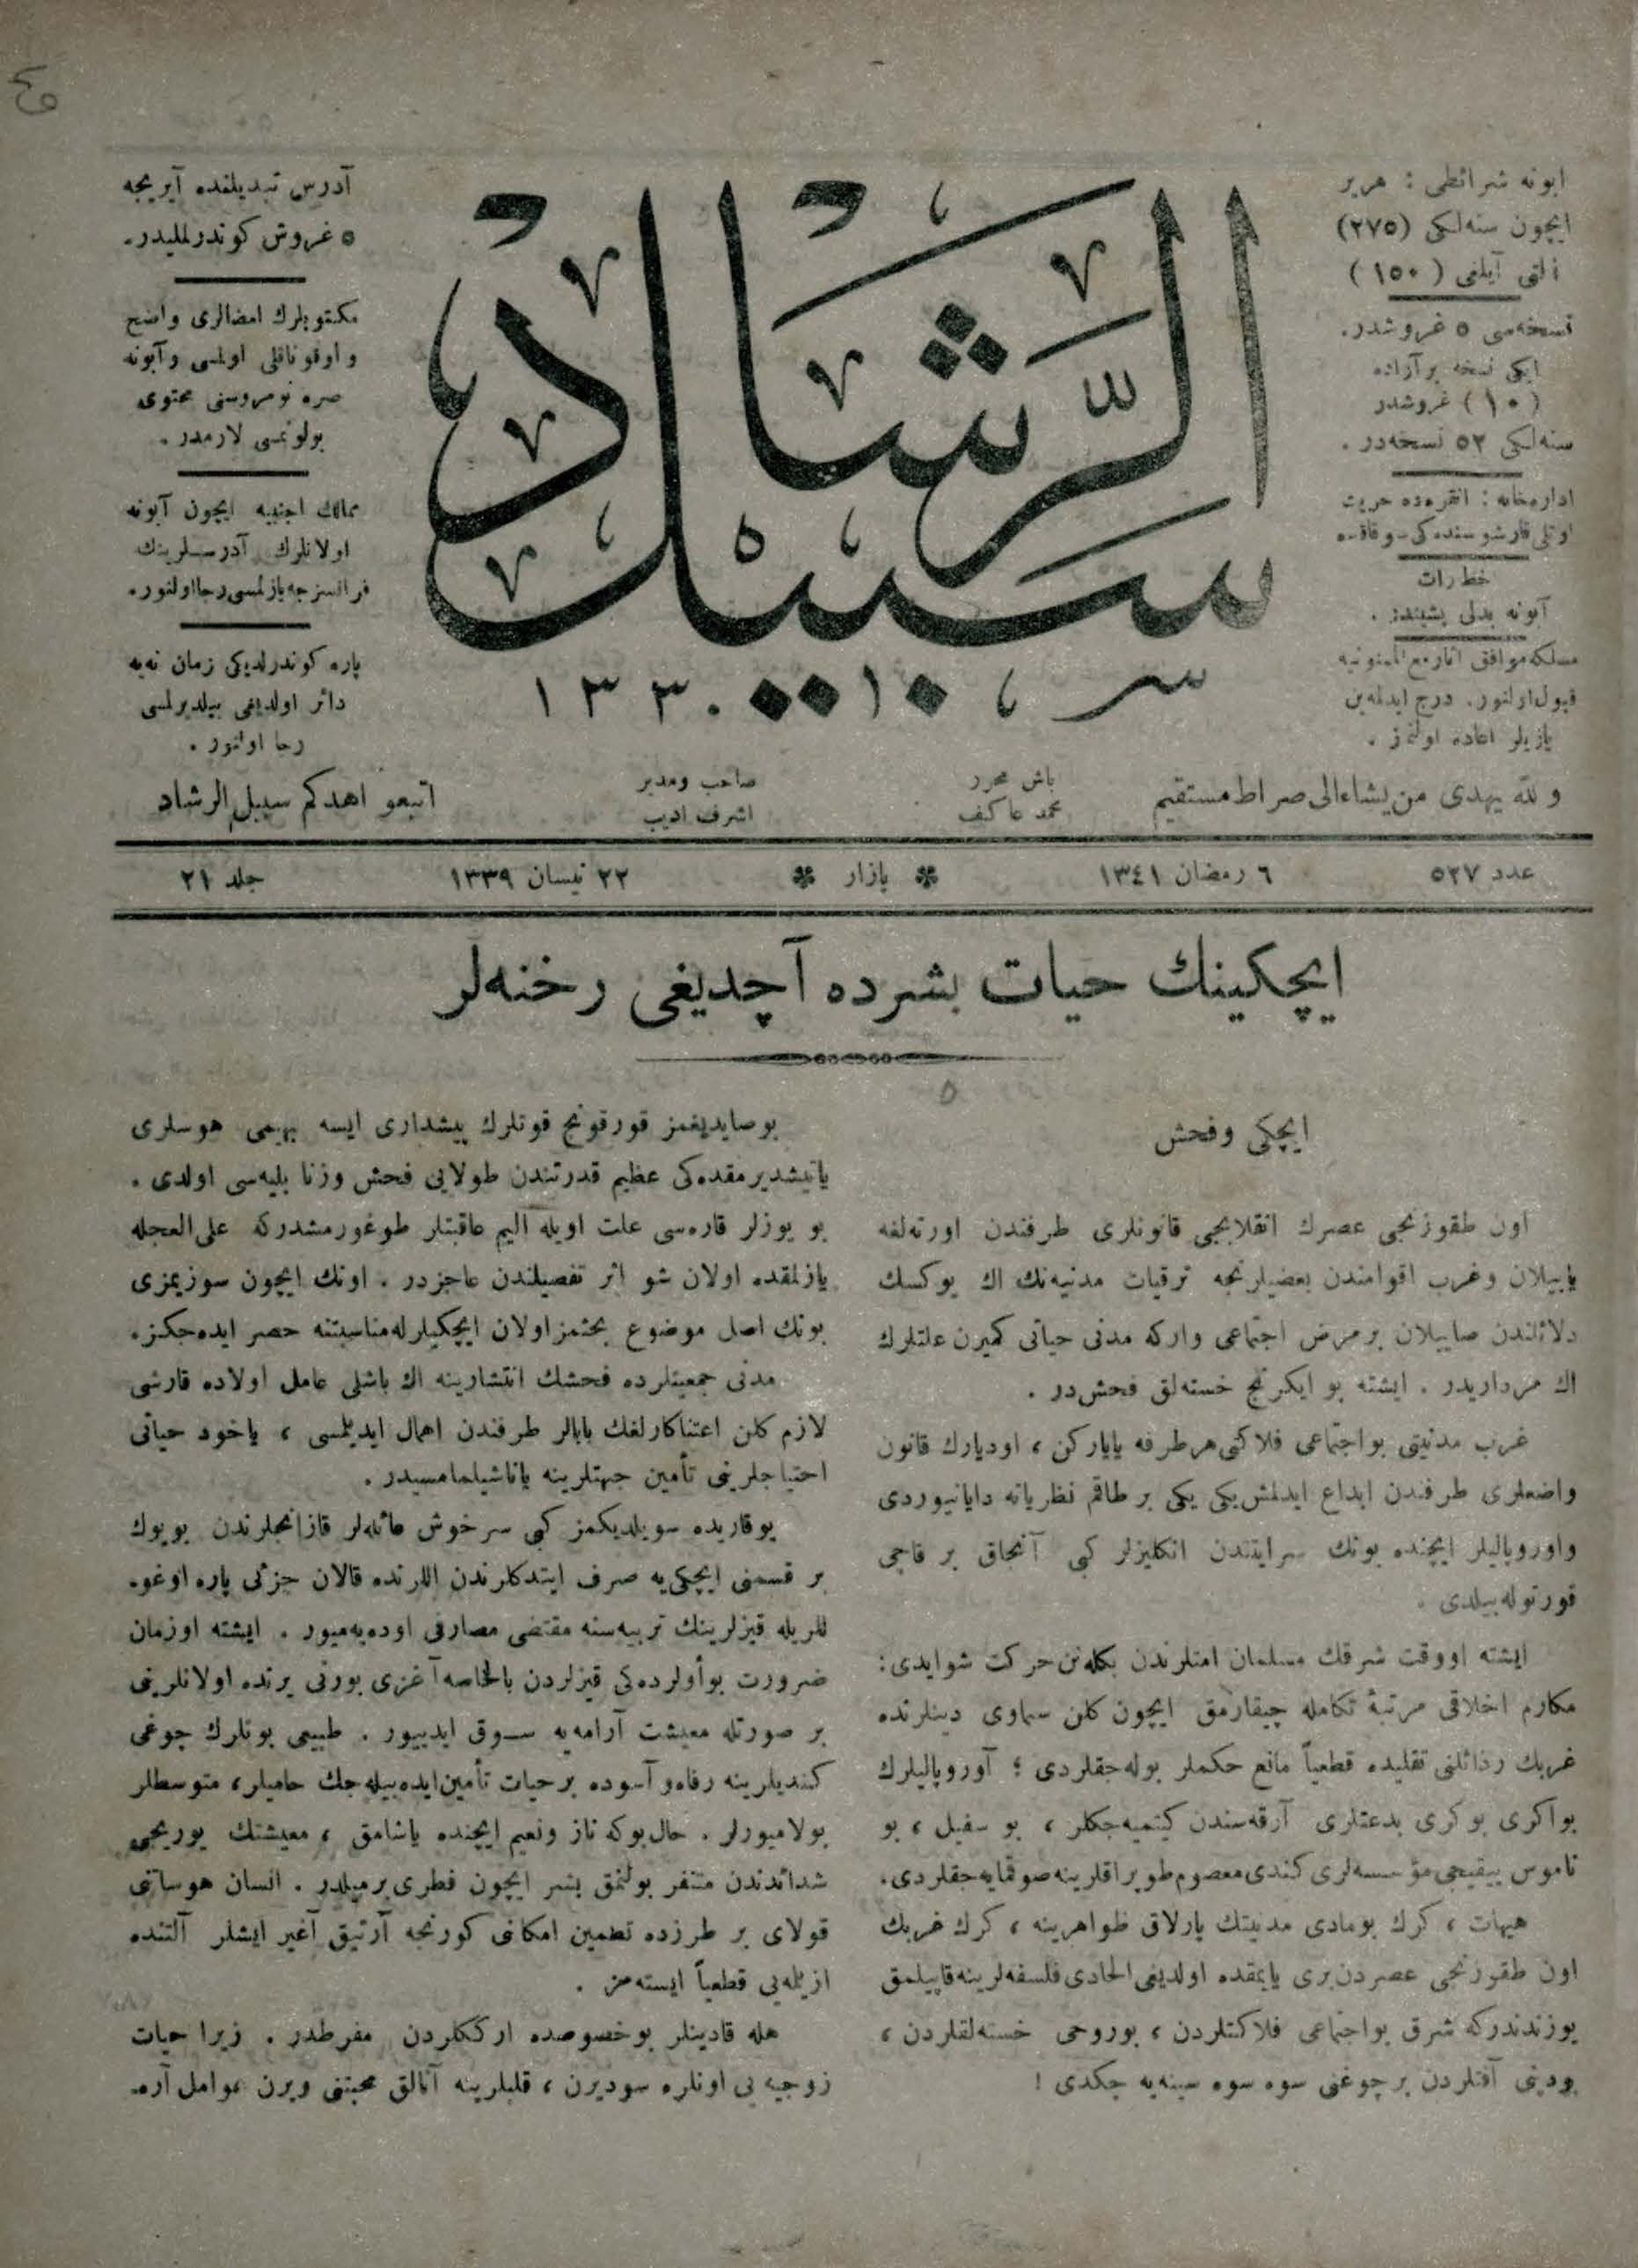 ابونه شرائطی : هر یر
ایچون سنه‌لکی (٢٧٥)
آلتی آیلغی (١٥٠)
نسخه‌سی ٥ غروشدر.
ایکی نسخه بر آراده
(١٠) غروشدر
سنه‌لکی ٥٢ نسخه‌در .
اداره‌خانه : انقره‌ده حریت
اوتلی قارشوسنده‌کی سوقاقده
خطرات
آبونه بدلی پشیندر .
مسلکه موافق آثار مع الممنونیه
قبول اولنور. درج ایدلمه‌ین
یازیلر اعاده اولنمز .
سبیل الرشاد
١٣٣٠
آدرس تبدیلنده آیریجه
٥ غروش کوندرلملیدر.
مکتوبلرك امضالری واضح
و اوقوناقلی اولمسی و آبونه
صره نومروسنی محتوی
بولونمسی لازمدر .
ممالك اجنبیه ایچون آبونه
اولانلرك آدرسلرینك
فرانسزجه یازلمسی رجا اولنور.
پاره کوندرلدیکی زمان نه‌یه
دائر اولدیغی بیلدیرلمسی
رجا اولنور .
والله یهدی من یشاء الی صراط مستقیم
باش محرر
محمد عاکف
صاحب ومدیر
اشرف ادیب
اتبعو اهدکم سبیل الرشاد
عدد ٥٢٧
٦ رمضان ١٣٤١
بازار
٢٢ نیسان ١٣٣٩
جلد ٢١
ایچکینك حیات بشرده آچدیغی رخنه‌لر
ایچکی وفحش
اون طقوزنجی عصرك انقلابجی قانونلری طرفندن اورته‌لغه
یاییلان وغرب اقوامندن بعضیلرنجه ترقیات مدنیه‌نك اك یوکسك
دلائلندن صاییلان بر مرض اجتماعی وارکه مدنی حیاتی کمیرن علتلرك
اك مرداریدر . ایشته بو ایکرنج خسته‌لق فحش‌در .
غرب مدنیتی بو اجتماعی فلاکتی هر طرفه یایارکن ، اودیارك قانون
واضعلری طرفندن ابداع ایدلمش یکی یکی بر طاقم نظریاته دایانیوردی
واوروپالیلر ایچنده بونك سرایتندن انکلیزلر کبی آنجاق بر قاچی
قورتوله‌بیلدی .
ایشته اووقت شرقك مسلمان امتلرندن بکله‌نن حرکت شوایدی :
مکارم اخلاقی مرتبهٔ تکامله چیقارمق ایچون کلن سماوی دینلرنده
غربك رذائلنی تقلیده قطعیاً مانع حکملر بوله‌جقلردی ؛ آوروپالیلرك
بو اکری بوکری بدعتلری آرقه‌سندن کیتمیه‌جکلر ، بو سفیل ، بو
ناموس ییقیجی مؤسسه‌لری کندی معصوم طوپراقلرینه صوقمایه‌جقلردی.
هیهات ، کرك بومادی مدنیتك پارلاق ظواهرینه ، کرك غربك
اون طقوزنجی عصردن‌بری یایمقده اولدیغی الحادی فلسفه‌لرینه قاپیلمق
یوزندندرکه شرق بو اجتماعی فلاکتلردن ، بوروحی خسته‌لقلردن ،
بودینی آفتلردن بر چوغنی سوه سوه سینه‌یه چکدی !
بو صایدیغمز قورقونج قوتلرك پیشداری ایسه بهیمی هوسلری
یاتیشدیرمقده‌کی عظیم قدرتندن طولایی فحش وزنا بلیه‌سی اولدی .
بو یوزلر قاره‌سی علت اویله الیم عاقبتلر طوغورمشدرکه علی العجله
یازلمقده اولان شو اثر تفصیلندن عاجزدر . اونك ایچون سوزیمزی
بونك اصل موضوع بحثمز اولان ایچکیلرله مناسبتنه حصر ایده‌جکز.
مدنی جمعیتلرده فحشك انتشارینه اك باشلی عامل اولاده قارشی
لازم کلن اعتناکارلغك بابالر طرفندن اهمال ایدیلمسی ، یاخود حیاتی
احتیاجلرینی تأمین جهتلرینه یاناشیلمامسیدر .
یوقاریده سویلدیکمز کبی سرخوش عائله‌لر قازانجلرندن بویوك
بر قسمنی ایچکی‌یه صرف ایتدکلرندن اللرنده قالان جزئی پاره اوغو-
للریله قیزلرینك تربیه‌سنه مقتضی مصارفی اوده‌یه‌میور . ایشته اوزمان
ضرورت بو أولرده‌کی قیزلردن بالخاصه آغزی بورنی یرنده اولانلرینی
بر صورتله معیشت آرامه‌یه سوق ایدییور . طبیعی بونلرك چوغی
کندیلرینه رفاه و آسوده بر حیات تأمین ایده‌بیله‌جك حامیلر، متوسطلر
بولامیورلر . حال بوکه ناز ونعیم ایچنده یاشامق ، معیشتك یوریجی
شدائدندن متنفر بولنمق بشر ایچون فطری بر میلدر . انسان هوساتنی
قولای بر طرزده تطمین امکانی کورنجه آرتیق آغیر ایشلر آلتنده
ازیلمه‌یی قطعیاً ایسته‌مز .
هله قادینلر بو خصوصده ارککلردن مفرطدر . زیرا حیات
زوجیه‌یی اونلره سودیرن ، قلبلرینه آنالق محبتنی ویرن عوامل آره-